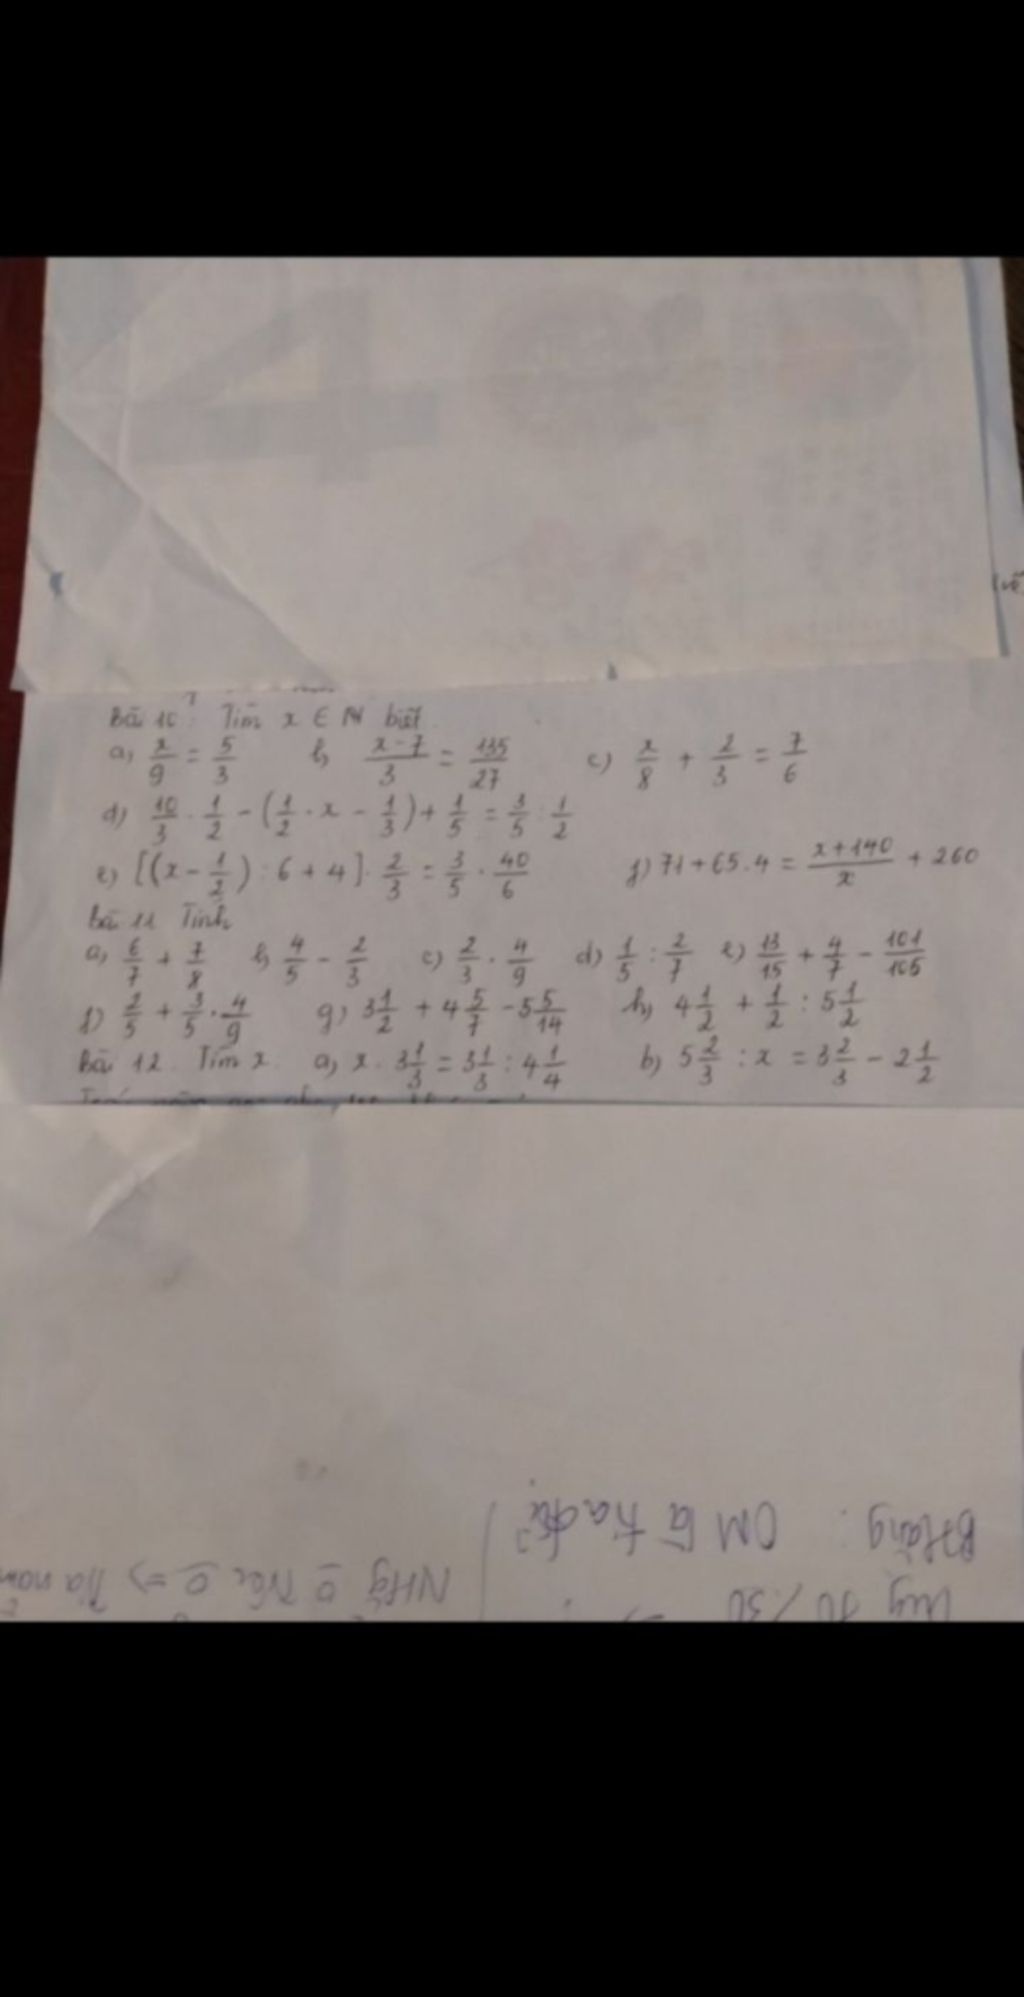 Bài 10: Tìm x ∈ N biết
a, x/9 = 5/3 b, x-7/3 = 135/27 c) x/8 + 2/3 = 7/6
d) 10/3 . 1/2 - (1/2 . x - 1/3) + 1/5 = 3/5 : 1/2
e) [(x - 1/2) : 6 + 4] . 2/3 = 3/5 . 40/6 f) 71 + 65.4 = x+140/x + 260
Bài 11 Tính
a, 6/7 + 7/8 b, 4/5 - 2/3 c) 2/3 . 4/9 d) 1/5 : 2/7 e) 13/15 + 4/7 - 101/105
f) 2/5 + 3/5 . 4/9 g) 3 1/2 + 4 5/7 - 5 5/14 h, 4 1/2 + 1/2 : 5 1/2
Bài 12. Tìm x. a, x . 3 1/3 = 3 1/3 : 4 1/4 b) 5 2/3 : x = 3 2/3 - 2 1/2
OM là tia